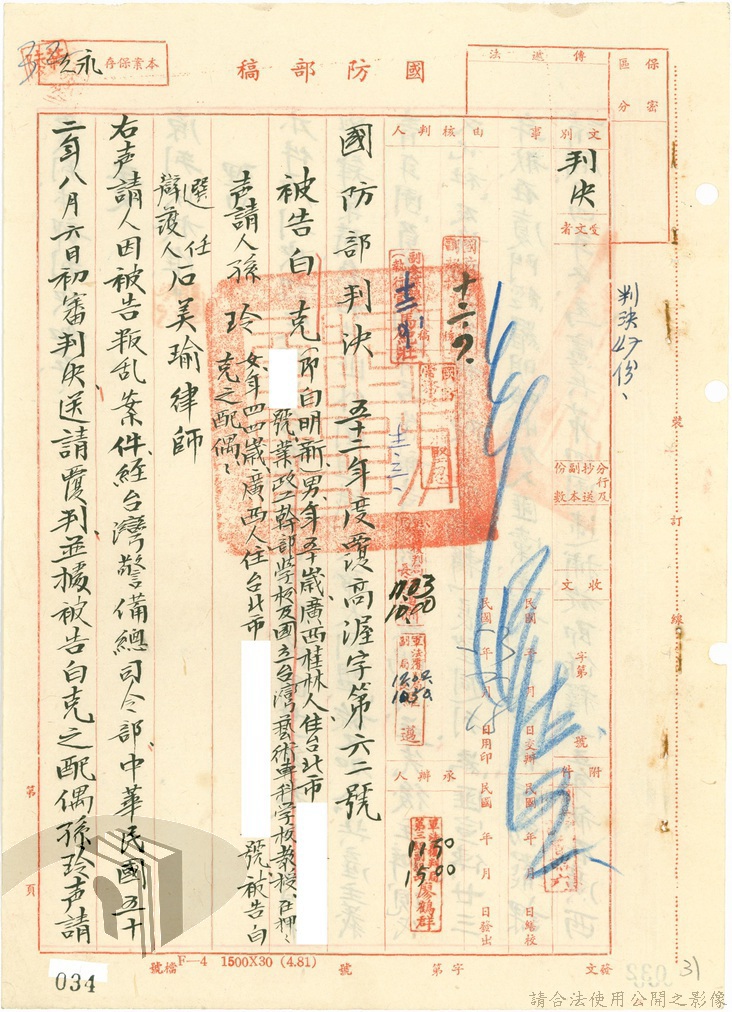 國防部稿
本案保存
永久
傳遞法
保密區分
文別
判決
受文者
事由
核判人
分行及抄送副本份數
收文
字第
號
附件
民國
年
月
日交辦
民國
年
月
日繕校
民國
年
月
日用印
民國
年
月
日發出
承辦人
廖鶴群
判決47份、
裝
訂
線
國防部判決
五十二年度覆高渥字第六二號
被告白克
即白明新、男、年五十歲、廣西桂林人、住台北市
號、業政工幹部學校及國立台灣藝術專科學校教授、在押、
声請人孫玲
女、年四四歲、廣西人、住台北市
號、被告白
克之配偶、
選任
辯護人石美瑜律師
右声請人因被告叛乱案件、經台灣警備總司令部中華民國五十
二年八月六日初審判決、送請覆判、並據被告白克之配偶孫玲声請
第
頁
發文
字第
號
檔號
F—4 1500X30 (4.81)
034
31
請合法使用公開之影像